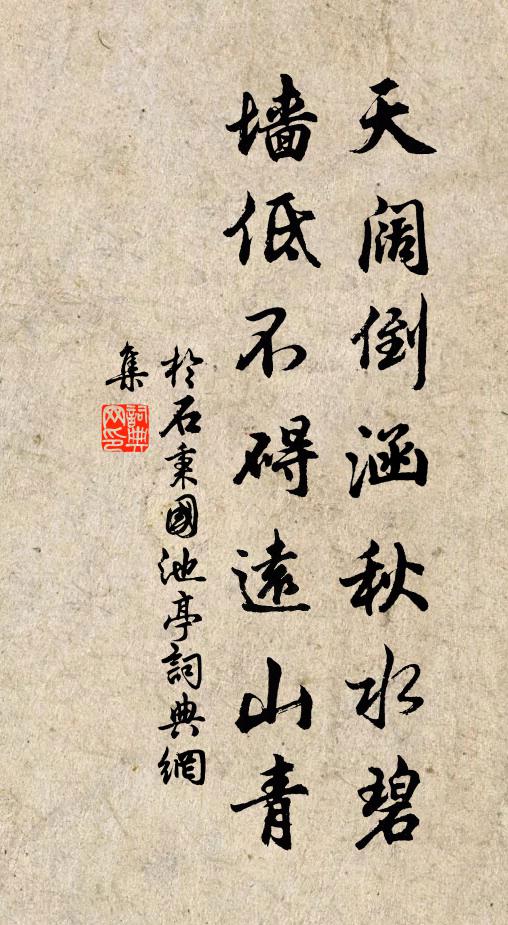 天阔倒涵秋水碧
墙低不碍遠山青
於石秉國池亭詞典網
集
詞典
网印